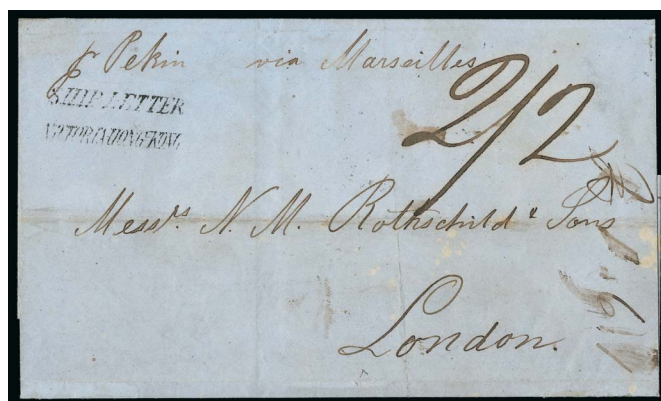 pr Pekin via Marseilles
SHIP LETTER
VICTORIA HONG-KONG
2/2
Messrs N. M. Rothschild & Sons
London.